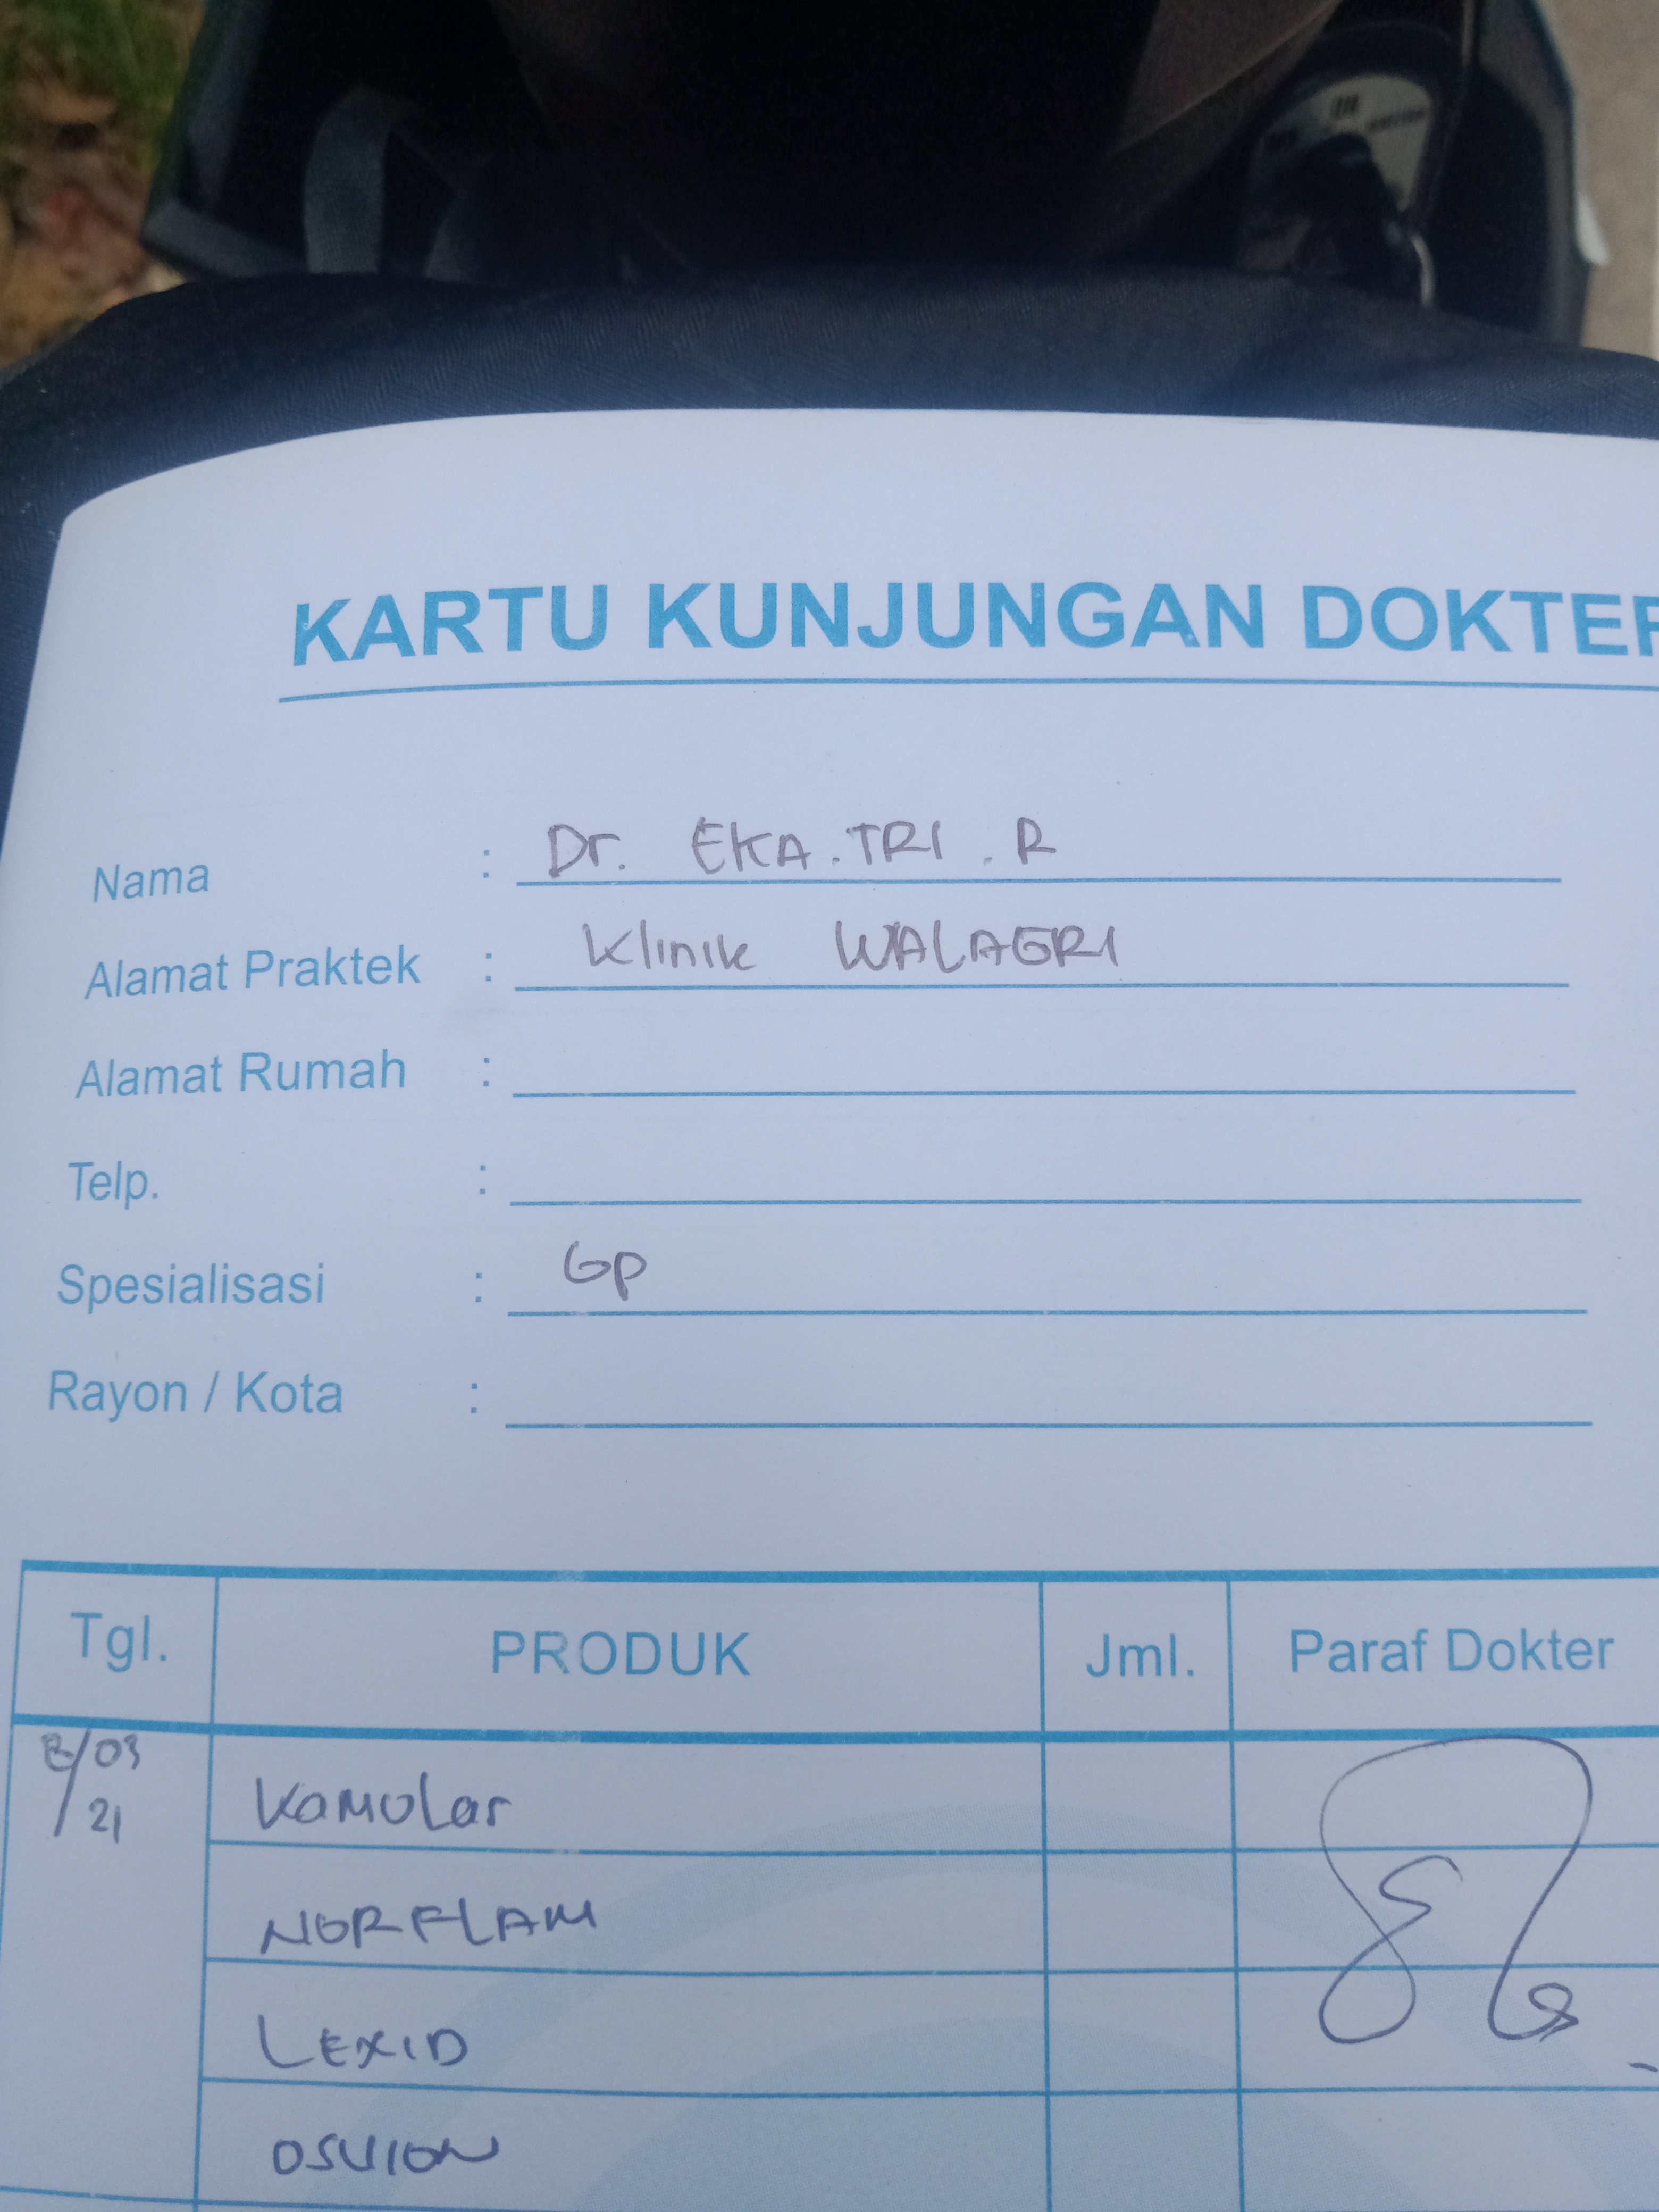 KARTU KUNJUNGAN DOKTER
Nama : Dr. EKA.TRI.R
Alamat Praktek : Klinik WALAGRI
Alamat Rumah :
Telp. :
Spesialisasi : GP
Rayon / Kota :
Tgl. PRODUK Jml. Paraf Dokter
/03 Kamolas
/21
NORFLAM
LEXID